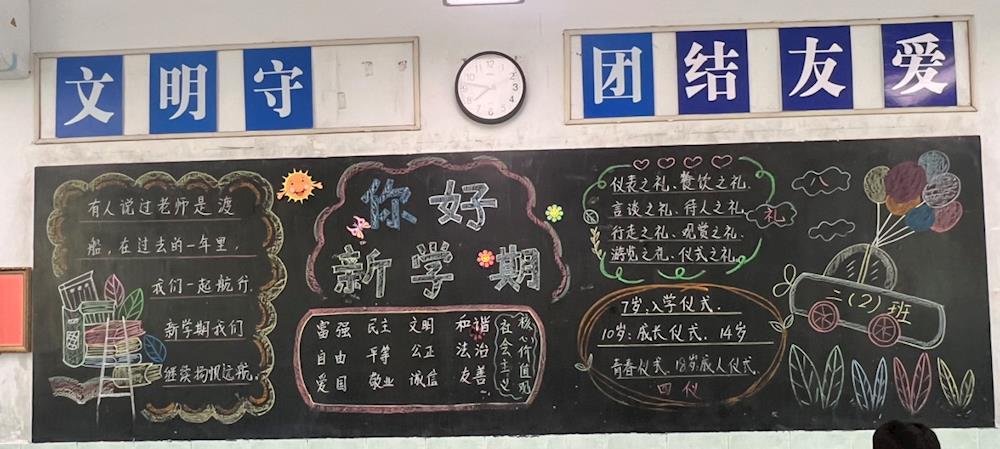 文明守
团结友爱
有人说过老师是渡
船，在过去的一年里，
我们一起航行.
新学期我们
继续扬帆远航.
你好
新学期
富强 民主 文明 和谐
自由 平等 公正 法治
爱国 敬业 诚信 友善
社会主义
核心价值观
仪表之礼、餐饮之礼
言谈之礼、待人之礼
行走之礼、观赏之礼
游览之礼、仪式之礼。
礼
7岁:入学仪式.
10岁:成长仪式. 14岁
青春仪式. 18岁成人仪式.
四仪
二(2)班